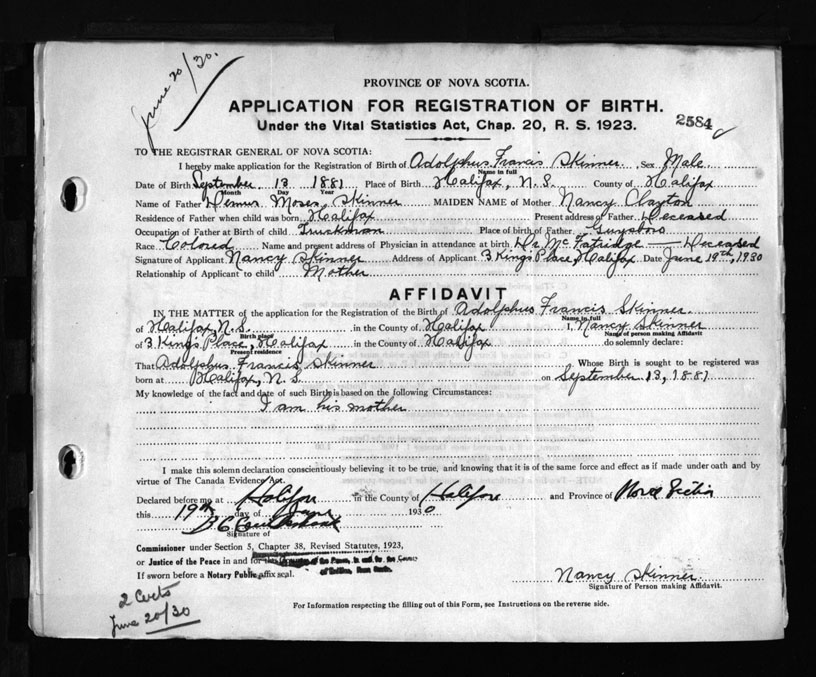 June 20/30.
PROVINCE OF NOVA SCOTIA.
APPLICATION FOR REGISTRATION OF BIRTH.
Under the Vital Statistics Act, Chap. 20, R. S. 1923.
2584
TO THE REGISTRAR GENERAL OF NOVA SCOTIA:
I hereby make application for the Registration of Birth of Adolphus Francis Skinner Sex Male
Name in full
Date of Birth September 13 1881 Place of Birth Halifax, N.S. County of Halifax
Month Day Year
Name of Father Moses Skinner MAIDEN NAME of Mother Nancy Clayton
Residence of Father when child was born Halifax Present address of Father Deceased
Occupation of Father at Birth of Child Truckman Place of birth of Father Guysboro
Race Colored Name and present address of Physician in attendance at birth Dr. McFatridge — Deceased
Signature of Applicant Nancy Skinner Address of Applicant 3 Kings Place, Halifax Date June 19th, 1930
Relationship of Applicant to child Mother
AFFIDAVIT
IN THE MATTER of the application for the Registration of the Birth of Adolphus Francis Skinner.
Name in full
of Halifax, N.S. in the County of Halifax I, Nancy Skinner
Birth place Name of person making Affidavit
of 3 Kings Place, Halifax in the County of Halifax do solemnly declare:
Present residence
That Adolphus Francis Skinner Whose Birth is sought to be registered was
born at Halifax, N.S. on September 13, 1881
My knowledge of the fact and date of such Birth is based on the following Circumstances:
I am his mother
I make this solemn declaration conscientiously believing it to be true, and knowing that it is of the same force and effect as if made under oath and by
virtue of The Canada Evidence Act.
Declared before me at Halifax in the County of Halifax and Province of Nova Scotia
this 19th day of June 1930
Signature of
Commissioner under Section 5, Chapter 38, Revised Statutes, 1923,
or Justice of the Peace in and for the
If sworn before a Notary Public affix seal.
Nancy Skinner
Signature of Person making Affidavit.
2 Certs
June 20/30
For Information respecting the filling out of this Form, see Instructions on the reverse side.